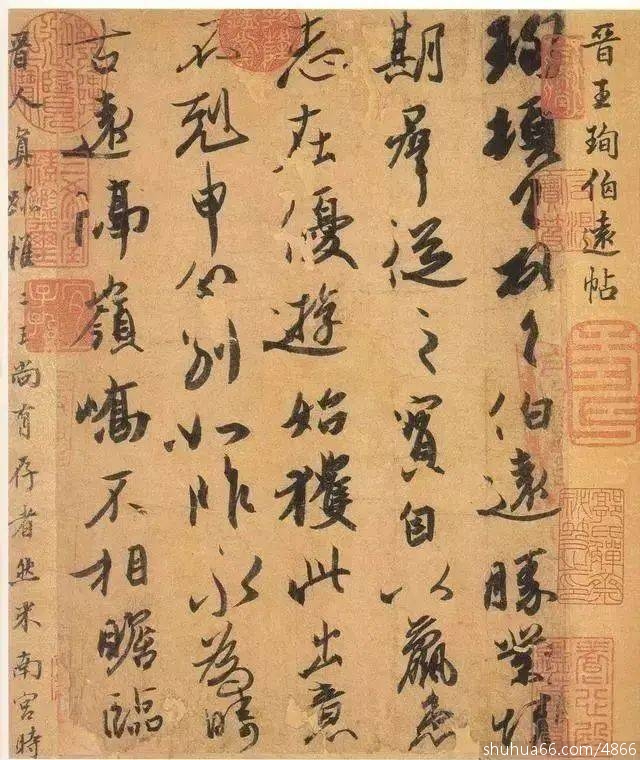 晋王珣伯遠帖
珣頓首頓首伯遠勝業情
期群從之寶自以羸患
志在優遊始獲此出意
不剋申分別如昨永為疇
古遠隔嶺嶠不相瞻臨
晉人真跡惟二王尚有存者然米南宮時
shuhua66.com/4866